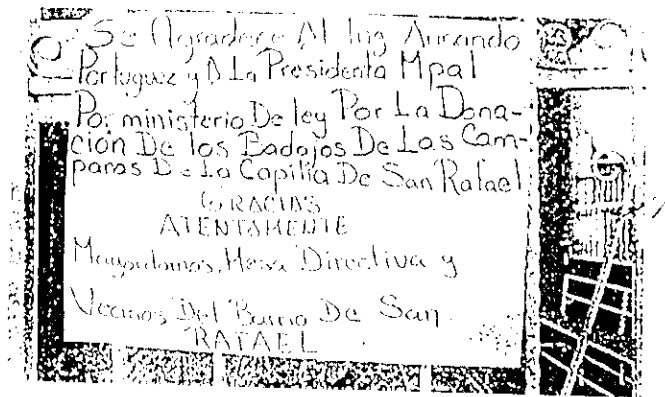 Se Agradece Al Ing Armando
Portuguez y A La Presidenta Mpal
Por ministerio De ley Por La Dona-
ción De los Badajos De Las Cam-
panas De La Capilla De San Rafael
GRACIAS
ATENTAMENTE
Mayordomos, Mesa Directiva y
Vecinos Del Barrio De San
RAFAEL